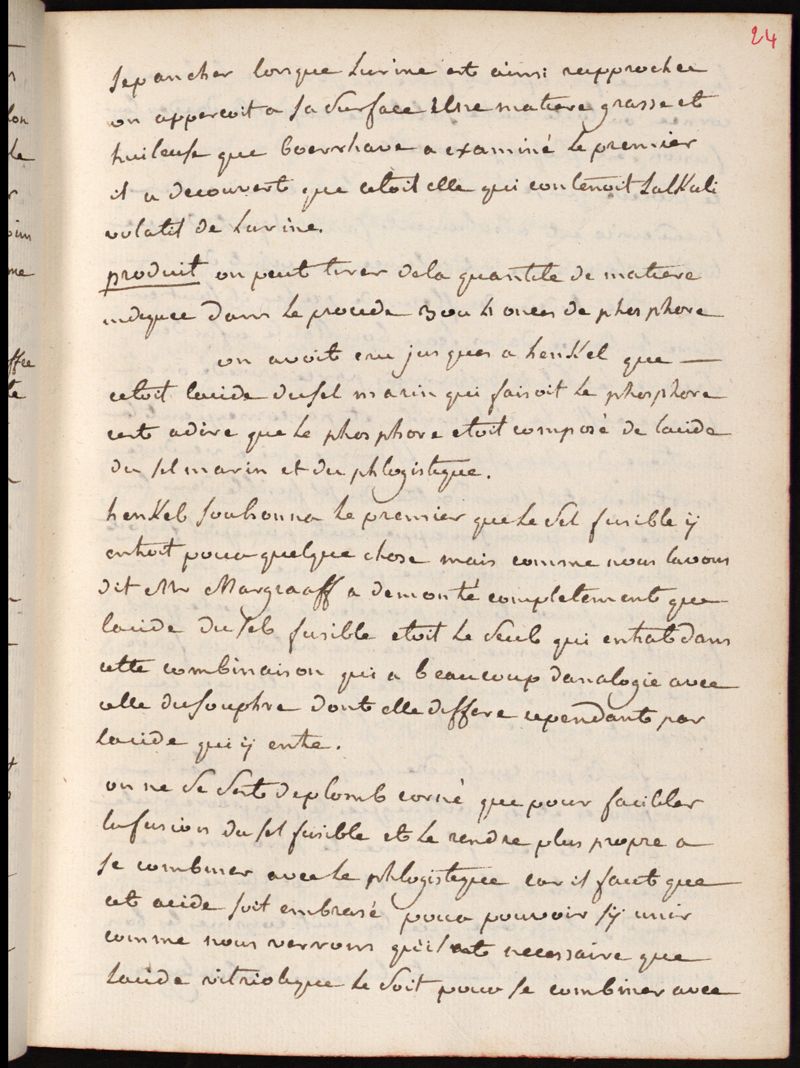 24
sepancher lorsque lurine est ainsi rapprochee
on appercoit a sa surface une matiere grasse et
huileuse que boerrhave a examiné le premier
il a decouvert que cetoit elle qui contenoit lalkali
volatil de lurine.
produit on peut tirer dela quantité de matiere
indiquee dans le procede 3 ou 4 onces de phosphore
on avoit cru jusques a henkel que —
cetoit lacide du sel marin qui faisoit le phosphore
cest adire que le phosphore etoit composé de lacide
du sel marin et du phlogistique.
henkel soubconna le premier que le sel fusible ÿ
entroit pour quelque chose mais comme nous lavons
dit Mr Margraaff a demontré completement que
lacide du sel fusible etoit le seul qui entrat dans
cette combinaison qui a beaucoup danalogie avec
celle du souphre dont elle differe cependant par
lacide qui ÿ entre.
on ne se sert deplomb corné que pour faciliter
lafusion du sel fusible et le rendre plus propre a
se combiner avec le phlogistique car il faut que
cet acide soit embrasé pour pouvoir sÿ unir
comme nous verrons quil est necessaire que
lacide vitriolique le soit pour se combiner avec